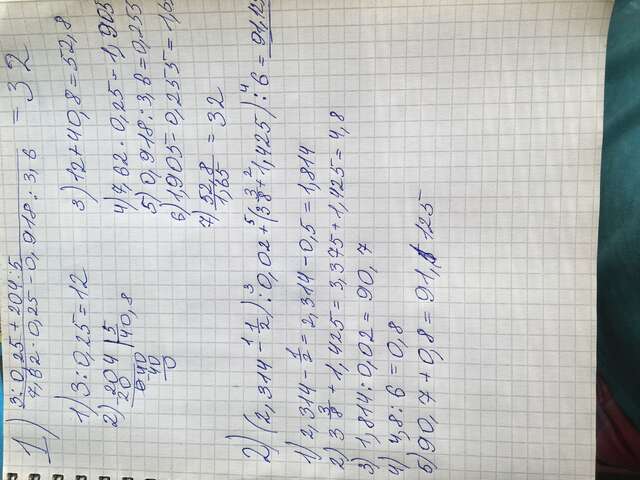 1) 3:0,25+204:5
7,62·0,25-0,918:3,6 = 32
1) 3:0,25=12
2) 204 | 5
20 | 40,8
040
40
0
3) 12+40,8=52,8
4) 7,62·0,25=1,905
5) 0,918:3,6=0,255
6) 1,905-0,255=1,6
7) 52,8
1,65 = 32
2) (2,314-1/2):0,02+(3 3/8+1,425):6=91,12
1) 2,314-1/2=2,314-0,5=1,814
2) 3 3/8+1,425=3,375+1,425=4,8
3) 1,814:0,02=90,7
4) 4,8:6=0,8
5) 90,7+0,8=91,125